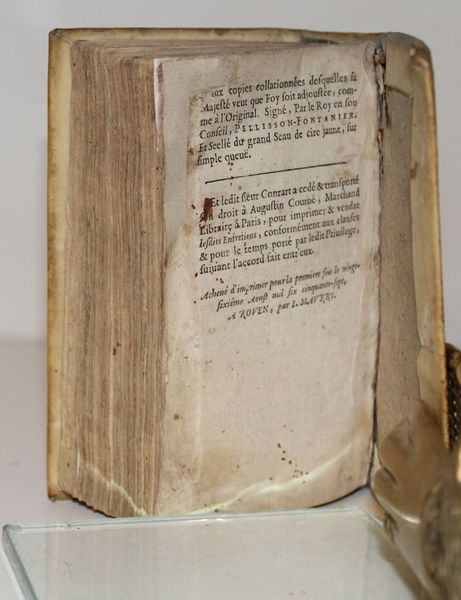 aux copies collationnées desquelles sa
Majesté veut que Foy soit adjoustée, com-
me à l'Original. Signé, Par le Roy en son
Conseil, PELLISSON-FONTANIER.
Et Seellé du grand Seau de cire jaune, sur
simple queuë.
Et ledit sieur Conrart a cedé & transporté
droit à Augustin Courbé, Marchand
Libraire à Paris, pour imprimer & vendre
lesdits Entretiens, conformément aux clauses
& pour le temps porté par ledit Privilege,
suiuant l'accord fait entr'eux.
Acheué d'imprimer pour la premiere fois le vingt-
sixiéme Aoust mil six cinquante-sept,
A ROVEN, par L. MAVRRY.